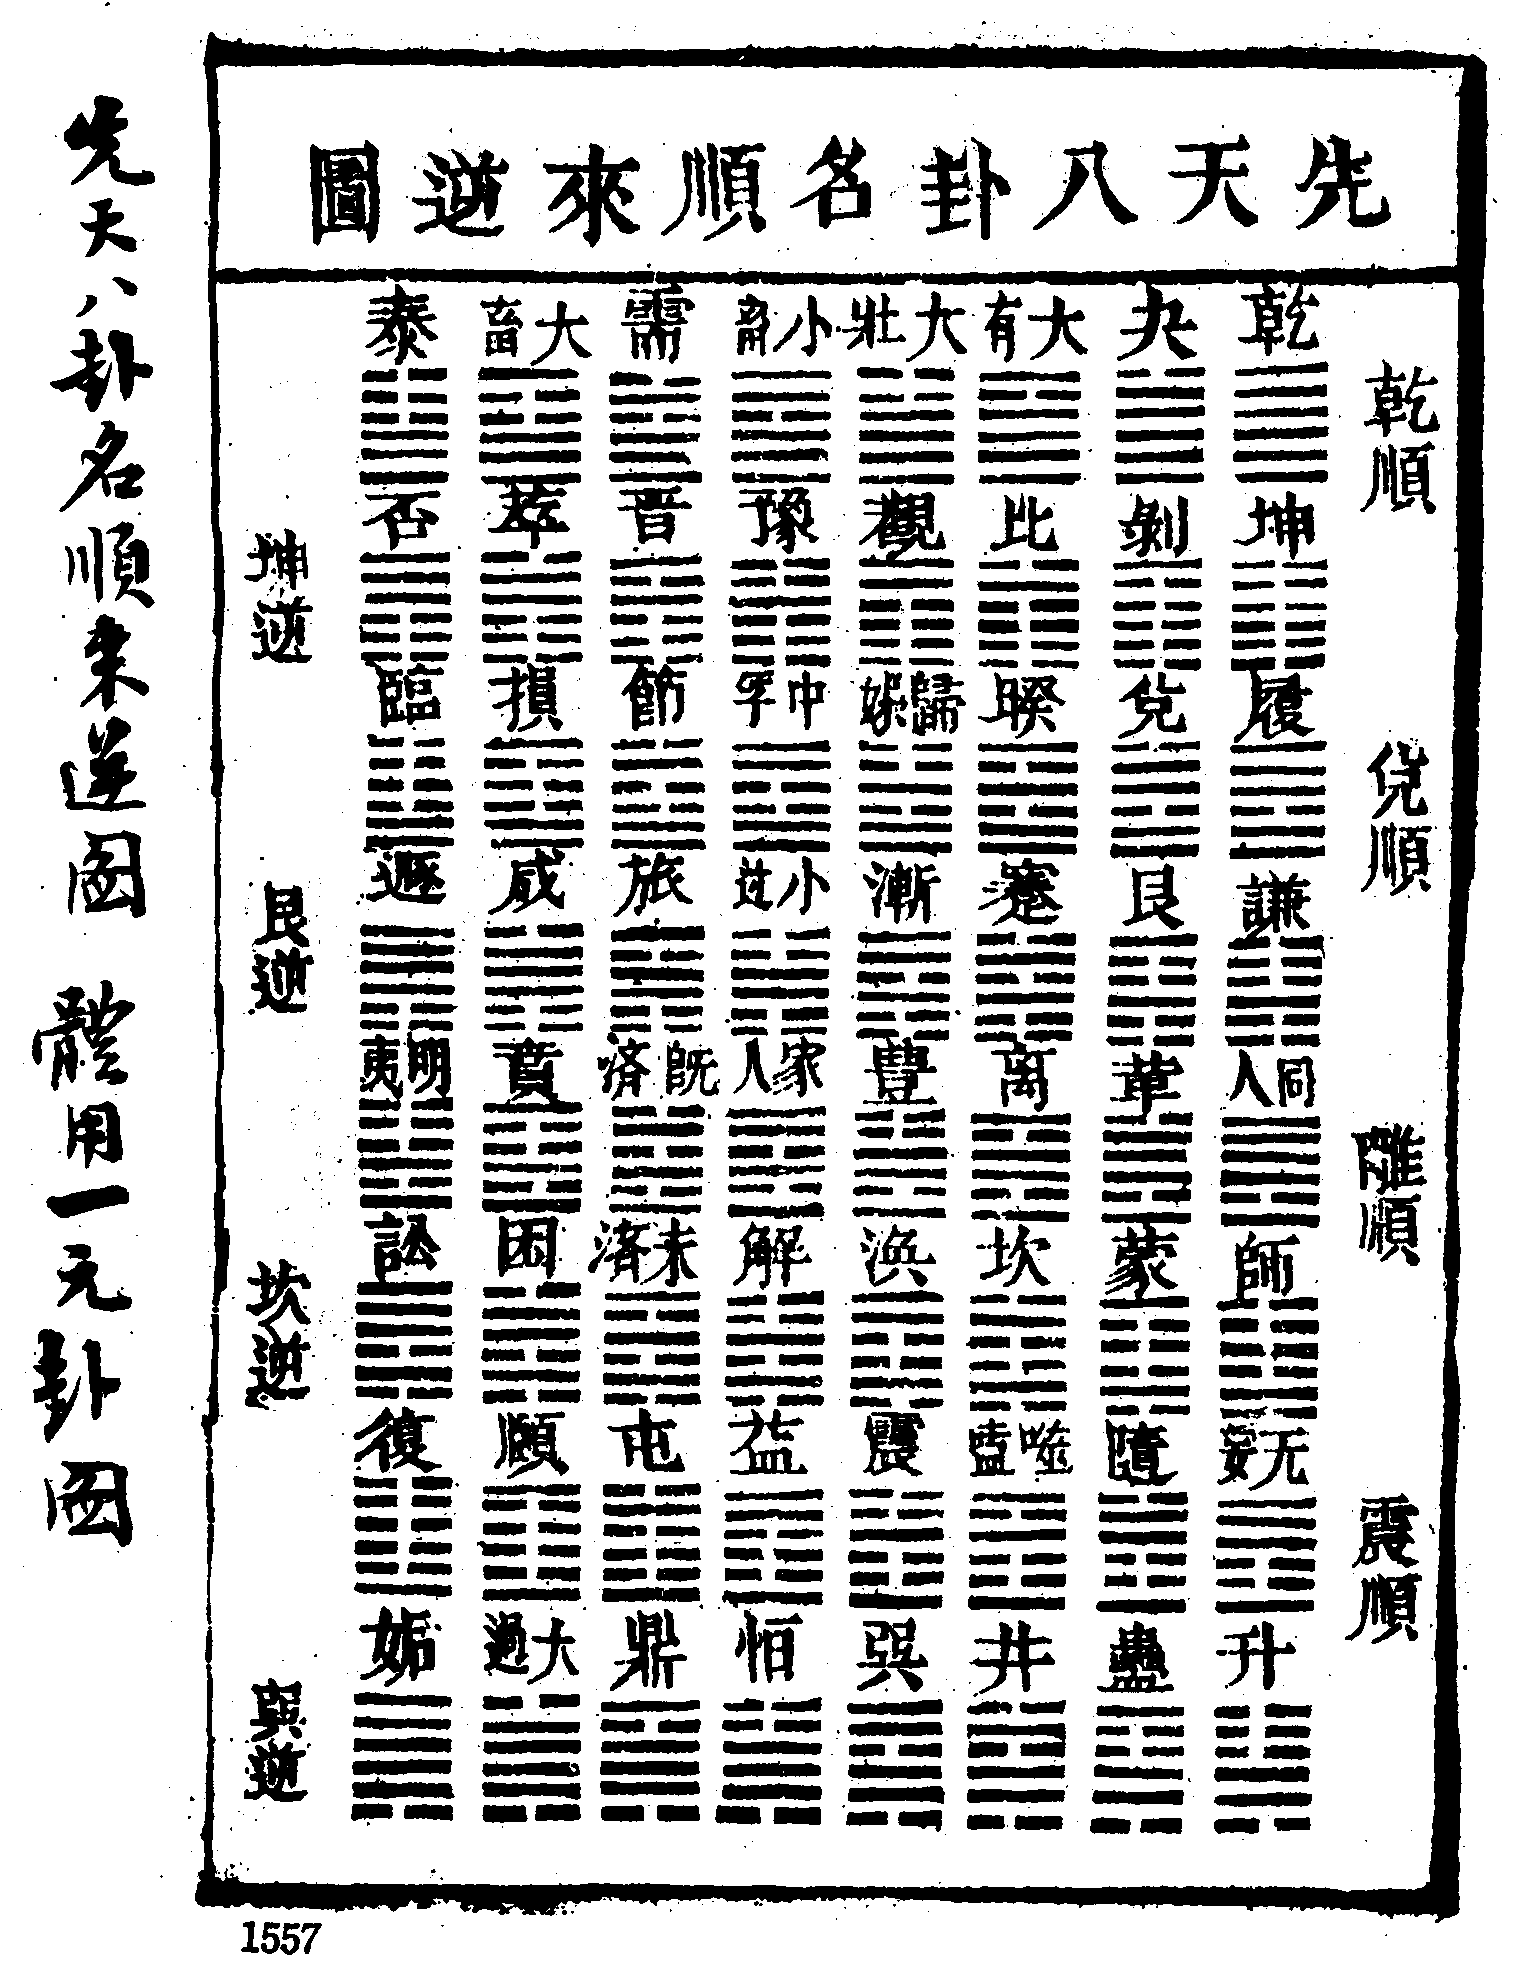 先天八卦名順來逆圖
乾順
兌順
離順
震順
乾 夬 大有 大壯 小畜 需 大畜 泰
坤 剝 比 觀 豫 晉 萃 否
履 兌 睽 歸妹 中孚 節 損 臨
謙 艮 蹇 漸 小过 旅 咸 遯
同人 革 离 豐 家人 既済 賁 明夷
師 蒙 坎 渙 解 未済 困 訟
无妄 隨 噬嗑 震 益 屯 頤 復
升 蠱 井 巽 恒 鼎 大過 姤
坤逆
艮逆
坎逆
巽逆
先天八卦名順来逆圖 體用一元卦圖
1557